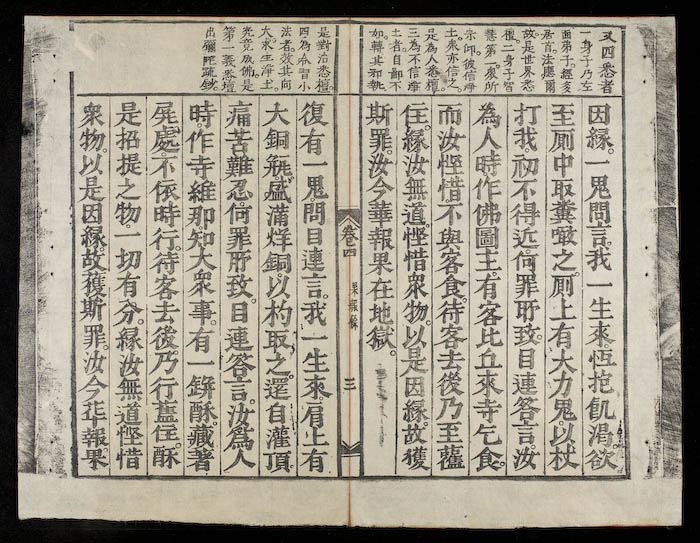 又四悉者
一身子乃左
面弟子經多
居首法應爾
故是世界悉
檀二身子智
慧第一衆所
宗仰彼信淨
土衆亦信之
是為人悉檀
三為不信淨
土者自鄙不
如轉其邪執
因緣。一鬼問言。我一生來。恆抱飢渴欲
至厠中取糞噉之。厠上有大力鬼。以杖
打我。初不得近。何罪所致。目連答言。汝
為人時作佛圖主。有客比丘來寺乞食。
而汝慳惜不與客食。待客去後乃至舊
住。緣汝無道。慳惜衆物。以是因緣。故獲
斯罪。汝今華報。果在地獄。
卷四 果報條 三
是對治悉檀
四為令習小
法者效其向
大求生淨土
究竟成佛是
第一義悉檀
出彌陀疏鈔
復有一鬼問目連言。我一生來。肩上有
大銅瓶。盛滿烊銅。以杓取之。還自灌頂
痛苦難忍。何罪所致。目連答言。汝為人
時作寺維那。知大衆事。有一鉼酥。藏著
屏處。不依時行。待客去後。乃行舊住。酥
是招提之物。一切有分。緣汝無道慳惜
衆物。以是因緣故獲斯罪。汝今花報。果